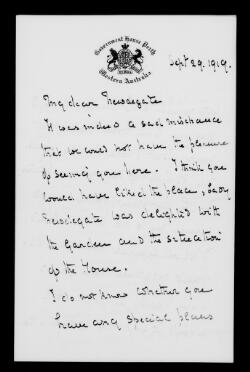 Government House Perth
Western Australia
Sept 29. 1919.
My dear Newdegate
It was indeed a sad mischance
that we could not have the pleasure
of seeing you here. I think you
would have liked the place, Lady
Newdegate was delighted with
the Garden and the situation
of the House.
I do not know whether you
have any special plans